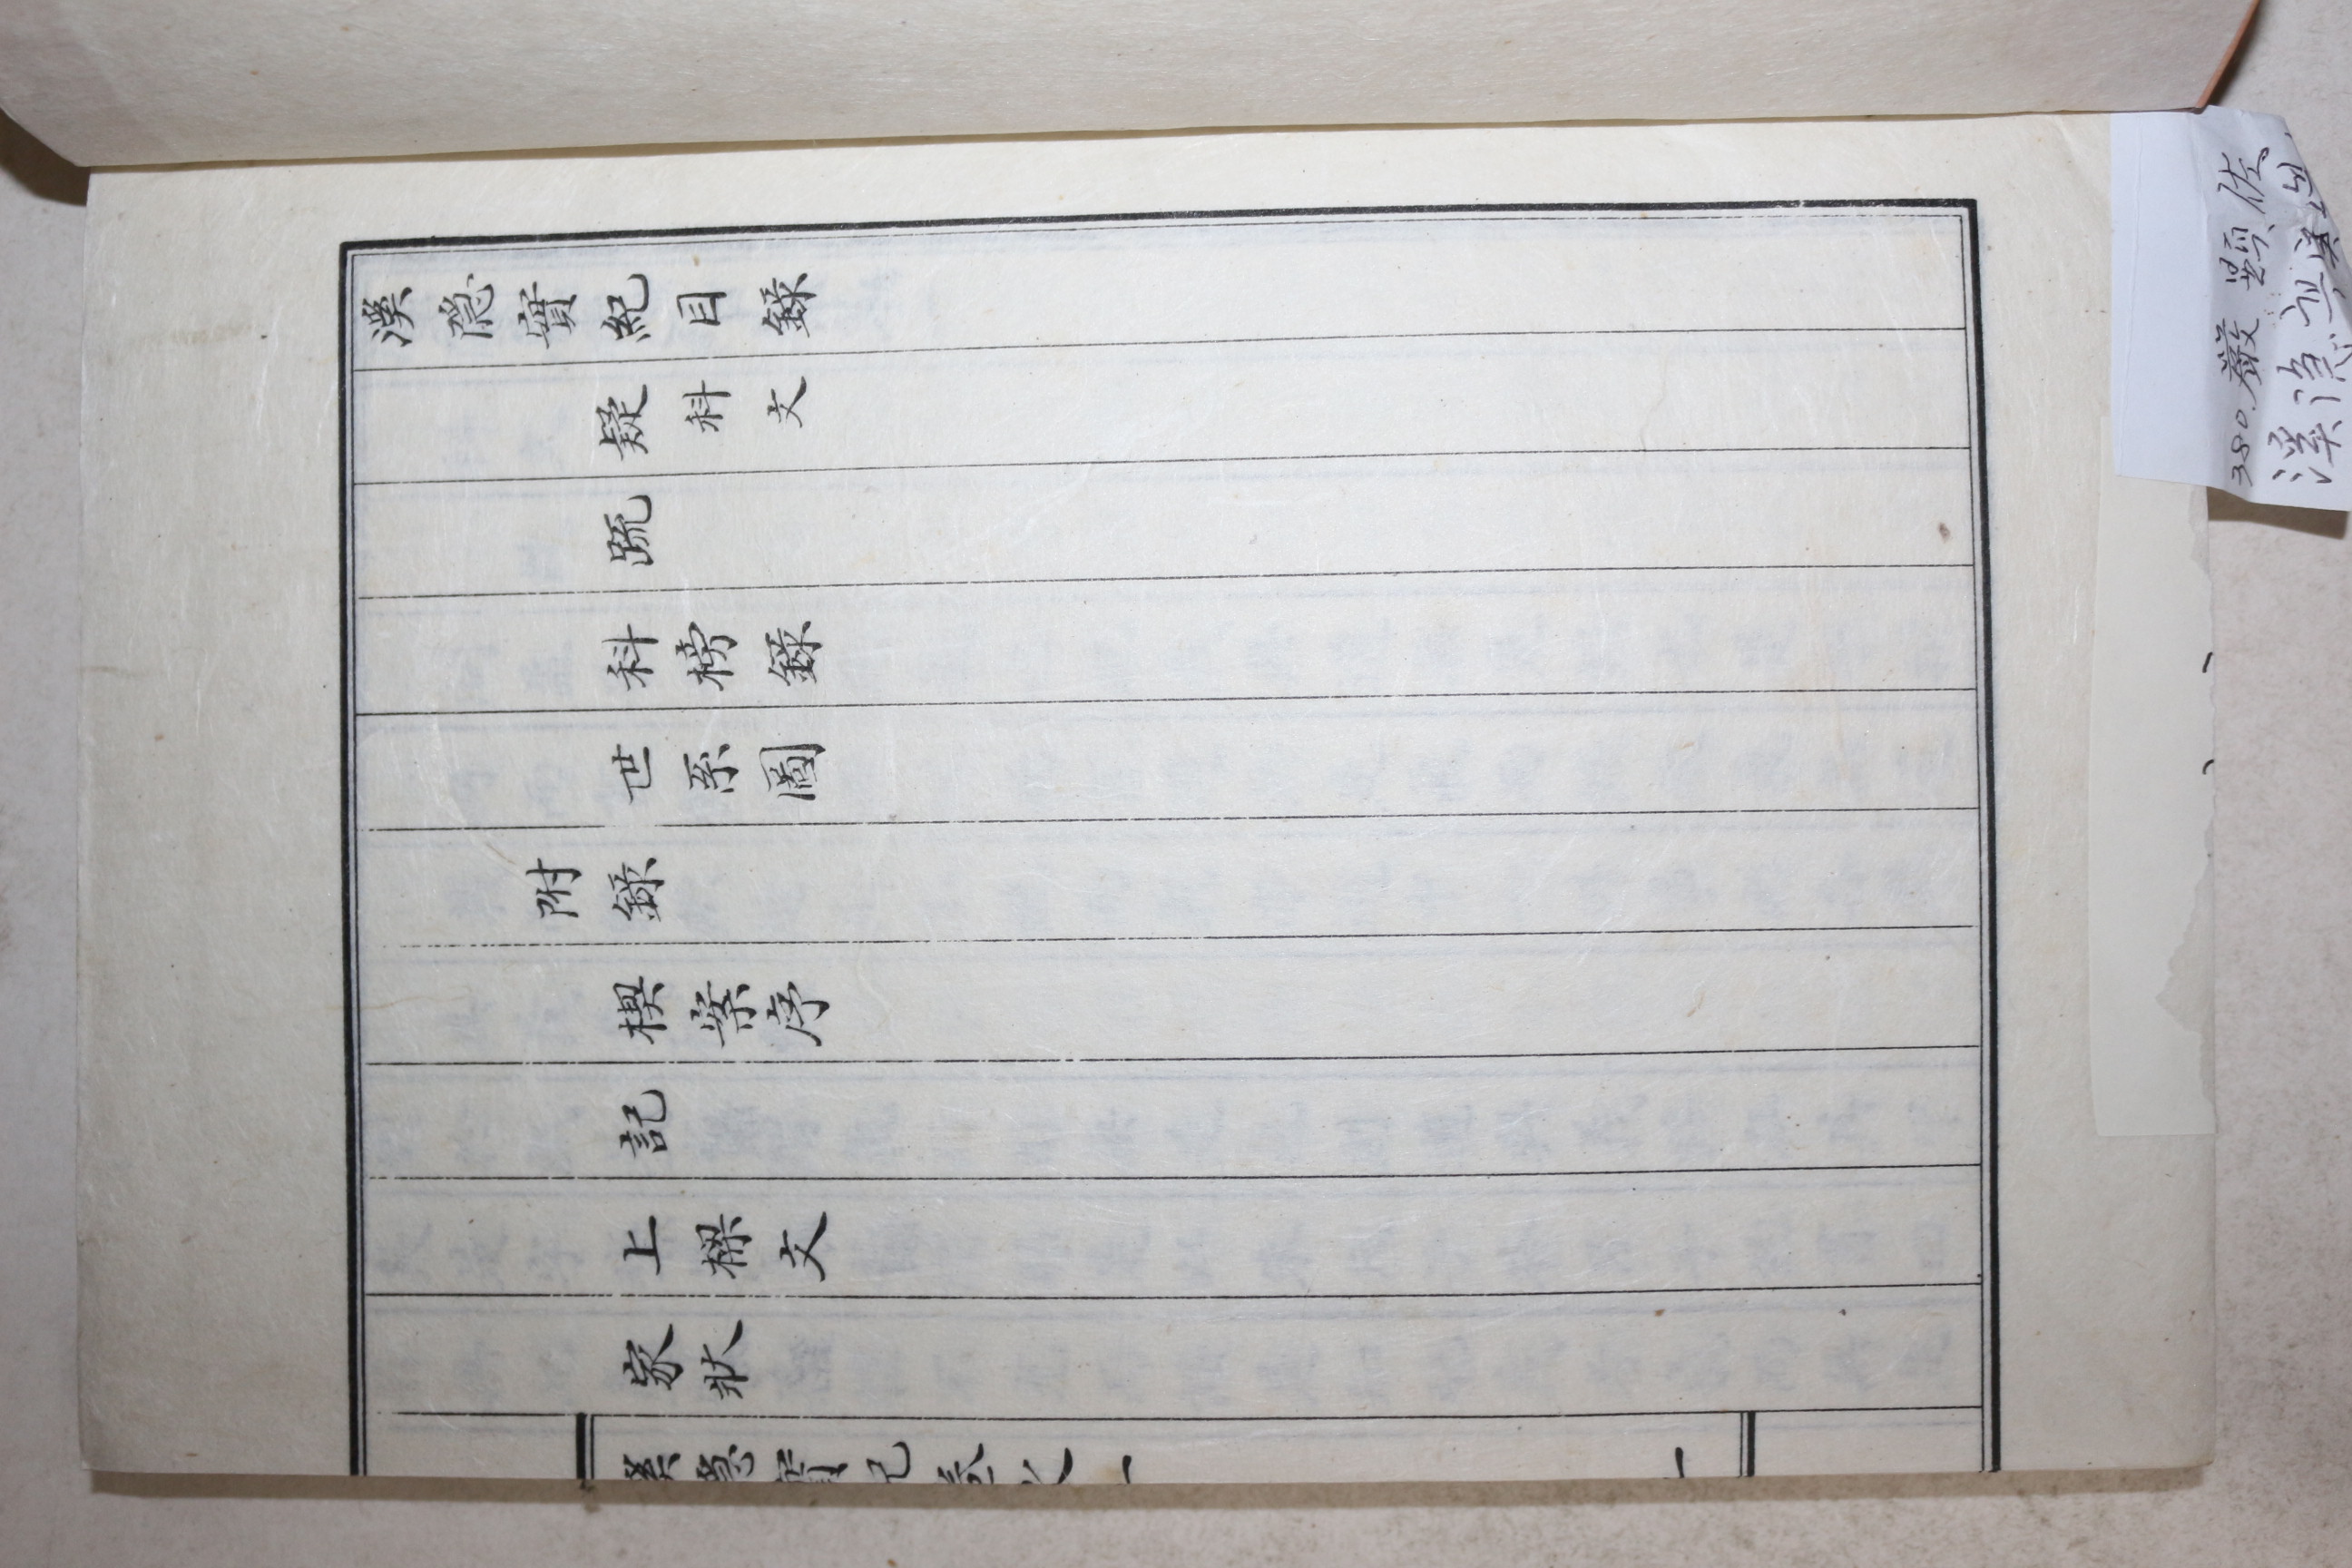 溪隐實紀目錄
疑科文
䟽
科榜錄
世系圖
附錄
楔案序
記
上樑文
家狀
溪隐實紀卷之一
一
380. 嚴顥佐
溪隐實